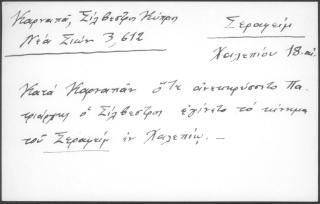 Καρναπᾶ, Σίλβεστρος Κύπρη
Νέα Σιών 3, 612
Σεραφείμ
Χαλεπίου 18. αἰ.
Κατὰ Καρναπᾶν ὅτε ἀνεκηρύσσετο Πα-
τριάρχης ὁ Σίλβεστρος ἐγένετο τὸ κίνημα
τοῦ Σεραφείμ ἐν Χαλεπίῳ. —